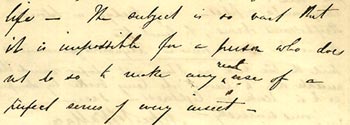 life — The subject is so vast that
it is impossible for a person who does
not do so to make any real use of a
perfect series of every insect —